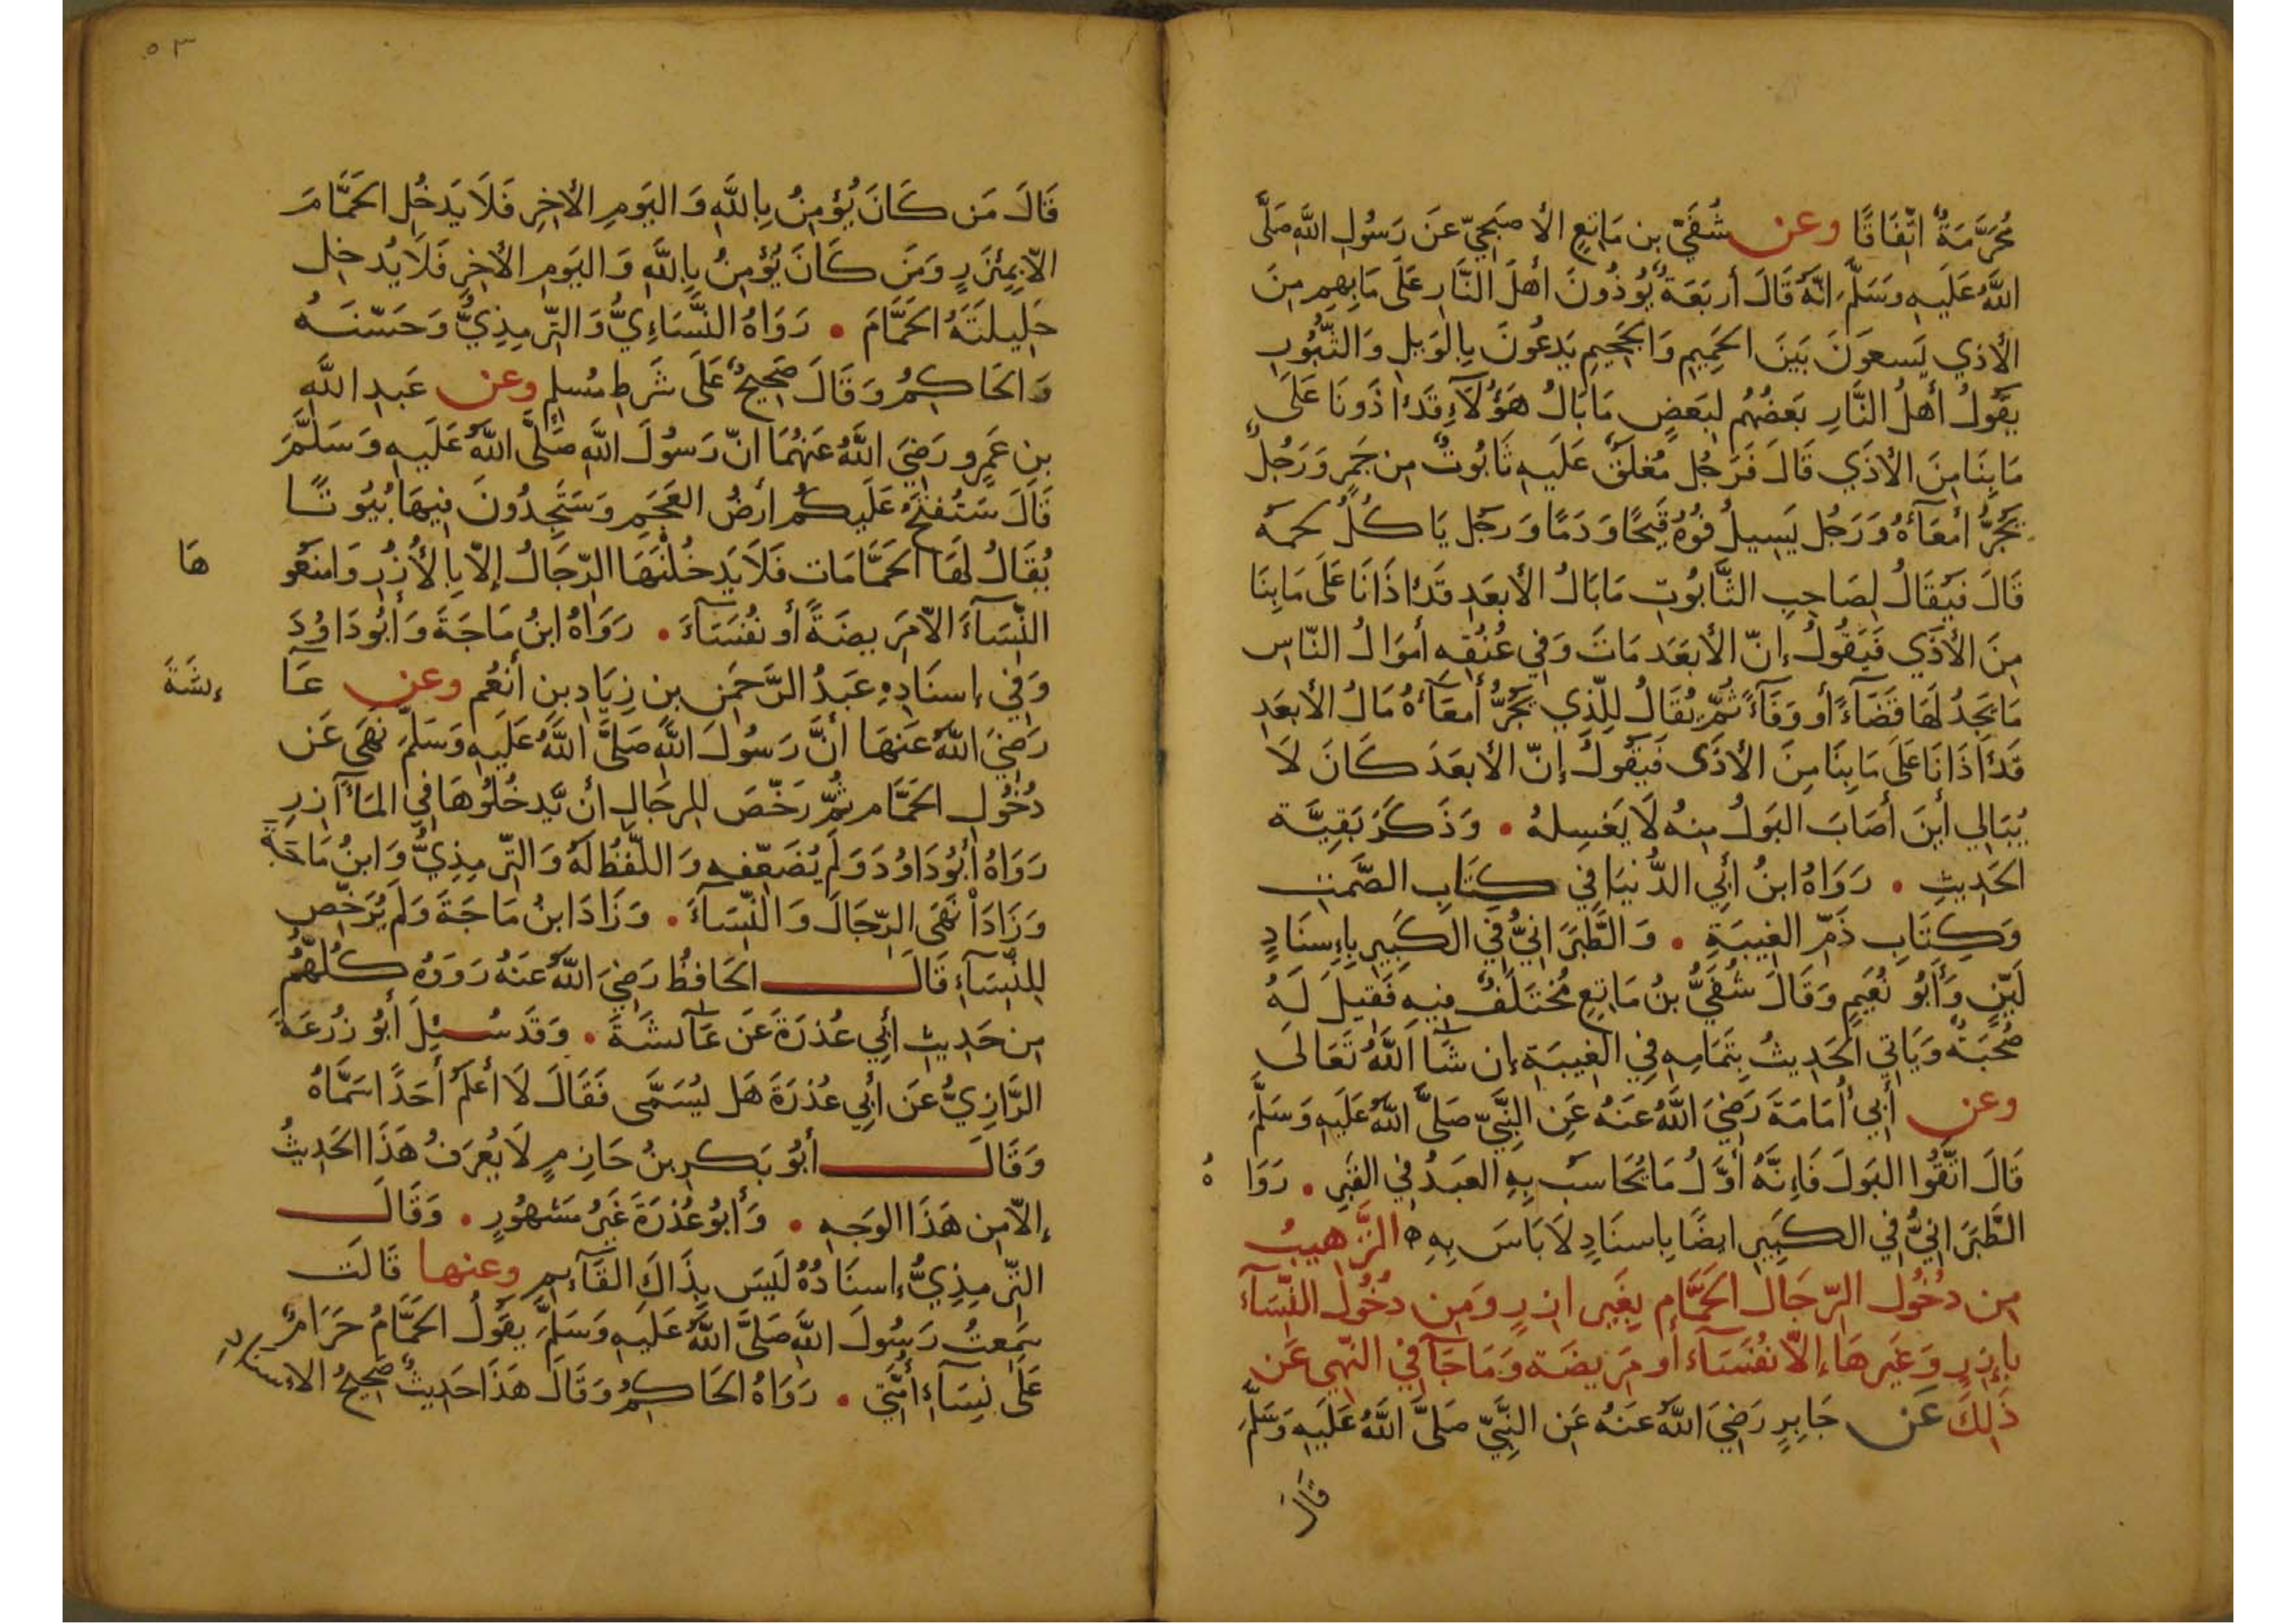 مُحَرَّمَةٌ اتِّفَاقًا وعن شُفَيِّ بنِ مَاتِعٍ الأصبَحِيِّ عَن رَسُولِ اللَّهِ صَلَّى
اللَّهُ عَلَيهِ وَسَلَّمَ انَّهُ قَالَ أربَعَةٌ يُؤذُونَ أهلَ النَّارِ عَلَى مَا بِهِم مِنَ
الأذي يَسعَونَ بَينَ الحَمِيمِ وَالجَحِيمِ يَدعُونَ بِالوَيلِ وَالثُّبُورِ
يَقُولُ أهلُ النَّارِ بَعضُهُم لِبَعضٍ مَا بَالُ هَؤُلَآءِ قَد اذَونَا عَلَى
مَا بِنَا مِنَ الأذَي قَالَ فَرَجُل مُغلَقٌ عَلَيهِ تَابُوتٌ مِن جَمرٍ وَرَجُلٌ
يَجُرُّ أمعَآءَهُ وَرَجُل يَسِيلُ فُوهُ قَيحًا وَدَمًا وَرَجُل يَاكُلُ لَحمَهُ
قَالَ فَيُقَالُ لِصَاحِبِ التَّابُوتِ مَا بَالُ الأبعَدِ قَد اذَانَا عَلَى مَا بِنَا
مِنَ الأذَي فَيَقُولُ إنّ الأبعَدَ مَاتَ وَفِي عُنُقِهِ أموَالُ النّاسِ
مَا يَجِدُ لَهَا قَضَآءً أو وَفَآءً ثُمّ يُقَالُ لِلَّذِي يَجُرُّ أمعَآءَهُ مَا بالُ الأبعَدِ
قَد اذَانَا عَلَى مَا بِنَا مِنَ الأذَى فَيَقُولُ إنّ الأبعَدَ كَانَ لَا
يُبَالِي أينَ أصَابَ البَولُ مِنهُ لَا يَغسِلهُ • وَذَكَرَ بَقِيَّةَ
الحَدِيثِ • رَوَاهُ ابنُ أبِي الدُّنيَا فِي كِتَابِ الصَّمتِ
وَكِتَابِ ذَمِّ الغِيبَةِ • وَالطَّبَرَانِيُّ فِي الكَبِيرِ بِإِسنَادٍ
لَيِّنٍ وَأبُو نُعَيمٍ وَقَالَ شُفَيُّ بنُ مَاتِعٍ مُختَلَفٌ فِيهِ فَقِيلَ لَهُ
صُحبَةٌ وَيَاتِي الحَدِيثُ بِتَمَامِهِ فِي الغِيبَةِ إن شَآ اللَّهُ تَعَالَى
وعن أبِي أُمَامَةَ رَضِيَ اللَّهُ عَنهُ عَنِ النَّبِيِّ صَلَّى اللَّهُ عَلَيهِ وَسَلَّمَ
قَالَ اتَّقُوا البَولَ فَإِنَّهُ أوَّلُ مَا يُحَاسَبُ بِهِ العَبدُ فِي القَبرِ • رَوَا هُ
الطَّبَرَانِيُّ فِي الكَبِيرِ ايضًا بِإسنَادٍ لَا بَاسَ بِهِ ه التَّرهِيبُ
مِن دُخُولِ الرِّجَالِ الحَمَّامِ بِغَيرِ ازرٍ وَمِن دُخُولِ النِّسَآءَ
بِإزرٍ وَغَيرِهَا إلّا نُفَسَآءَ أو مَرِيضَة وَمَا جَآ فِي النَّهيِ عَن
ذَلِكَ عَن جَابِرٍ رَضِيَ اللَّهُ عَنهُ عَنِ النَّبِيِّ صَلَّى اللَّهُ عَلَيهِ وَسَلَّمَ
قَالَ
٥٣
قَالَ مَن كَانَ يُؤمِنُ بِاللَّهِ وَاليَومِ الأخِرِ فَلَا يَدخُلِ الحَمَّامَ
الّا بِمِئزَرٍ وَمَن كَانَ يُؤمِنُ بِاللَّهِ وَاليَومِ الأخِرِ فَلَا يُدخِل
حَلِيلَتَهُ الحَمَّامَ • رَوَاهُ النَّسَاءِيُّ وَالتِّرمِذِيُّ وَحَسّنَهُ
وَالحَاكِمُ وَقَالَ صَحِيحٌ عَلَى شَرطِ مُسلِمٍ وعن عَبدِ اللَّهِ
بنِ عَمرٍو رَضِيَ اللَّهُ عَنهُمَا انّ رَسُولَ اللَّهِ صَلَّى اللَّهُ عَلَيهِ وَسَلَّمَ
قَالَ سَتُفتَحُ عَلَيكُم أرضُ العَجَمِ وَسَتَجِدُونَ فِيهَا بُيُوتًا
يُقَالُ لَهَا الحَمَّامَات فَلَا يَدخُلْنَهَا الرِّجَالُ إلّا بِالأُزُرِ وَامنَعُو هَا
النِّسَآءَ الّا مَرِيضَةً أو نُفَسَآءَ • رَوَاهُ ابنُ مَاجَةَ وَأبُو دَاوُدَ
وَفِي إسنَادِهِ عَبدُ الرَّحمَنِ بنِ زِيَادِ بنِ أنعُم وعن عَآ ئِشَةَ
رَضِيَ اللَّهُ عَنهَا أنَّ رَسُولَ اللَّهِ صَلَّى اللَّهُ عَلَيهِ وَسَلَّمَ نَهَى عَن
دُخُولِ الحَمَّامِ ثُمّ رَخّصَ لِلرِجَالِ أن يَّدخُلُوهَا فِي المَآزِرِ
رَوَاهُ أبُو دَاوُدَ وَلَم يُضَعِّفهِ وَاللّفظُ لَهُ وَالتِّرمِذِيُّ وَابنُ مَاجَةَ
وَزَادَاْ نَهَى الرِّجَالَ وَالنِّسَآءَ • وَزَادَ ابنُ مَاجَةَ وَلَم يُرَخِّص
لِلنِّسَآءِ قَالَ الحَافِظُ رَضِيَ اللَّهُ عَنهُ رَوَوهُ كُلُّهُم
مِن حَدِيثِ أبِي عُذرَةَ عَن عَآئشَةَ • وَقَد سُئِلَ أبُو زُرعَةَ
الرَّازِيُّ عَن أبِي عُذرَةَ هَل يُسَمَّى فَقَالَ لَا أعلَمُ أحَدًا سَمَّاهُ
وَقَالَ أبُو بَكرِ بنُ حَازِمٍ لَا يُعرَفُ هَذَا الحَدِيثُ
إلّا مِن هَذَا الوَجهِ • وَأبُو عُذرَةَ غَيرُ مَشهُورٍ • وَقَالَ
التِّرمِذِيُّ إسنَادُهُ لَيسَ بِذَاكَ القَآئِمِ وعنها قَالَت
سَمِعتُ رَسُولَ اللَّهِ صَلَّى اللَّهُ عَلَيهِ وَسَلَّمَ يَقُولُ الحَمَّامُ حَرَامٌ
عَلَى نِسَآءِ أُمَّتِي • رَوَاهُ الحَاكِمُ وَقَالَ هَذَا حَدِيثٌ صَحِيحُ الاسناد